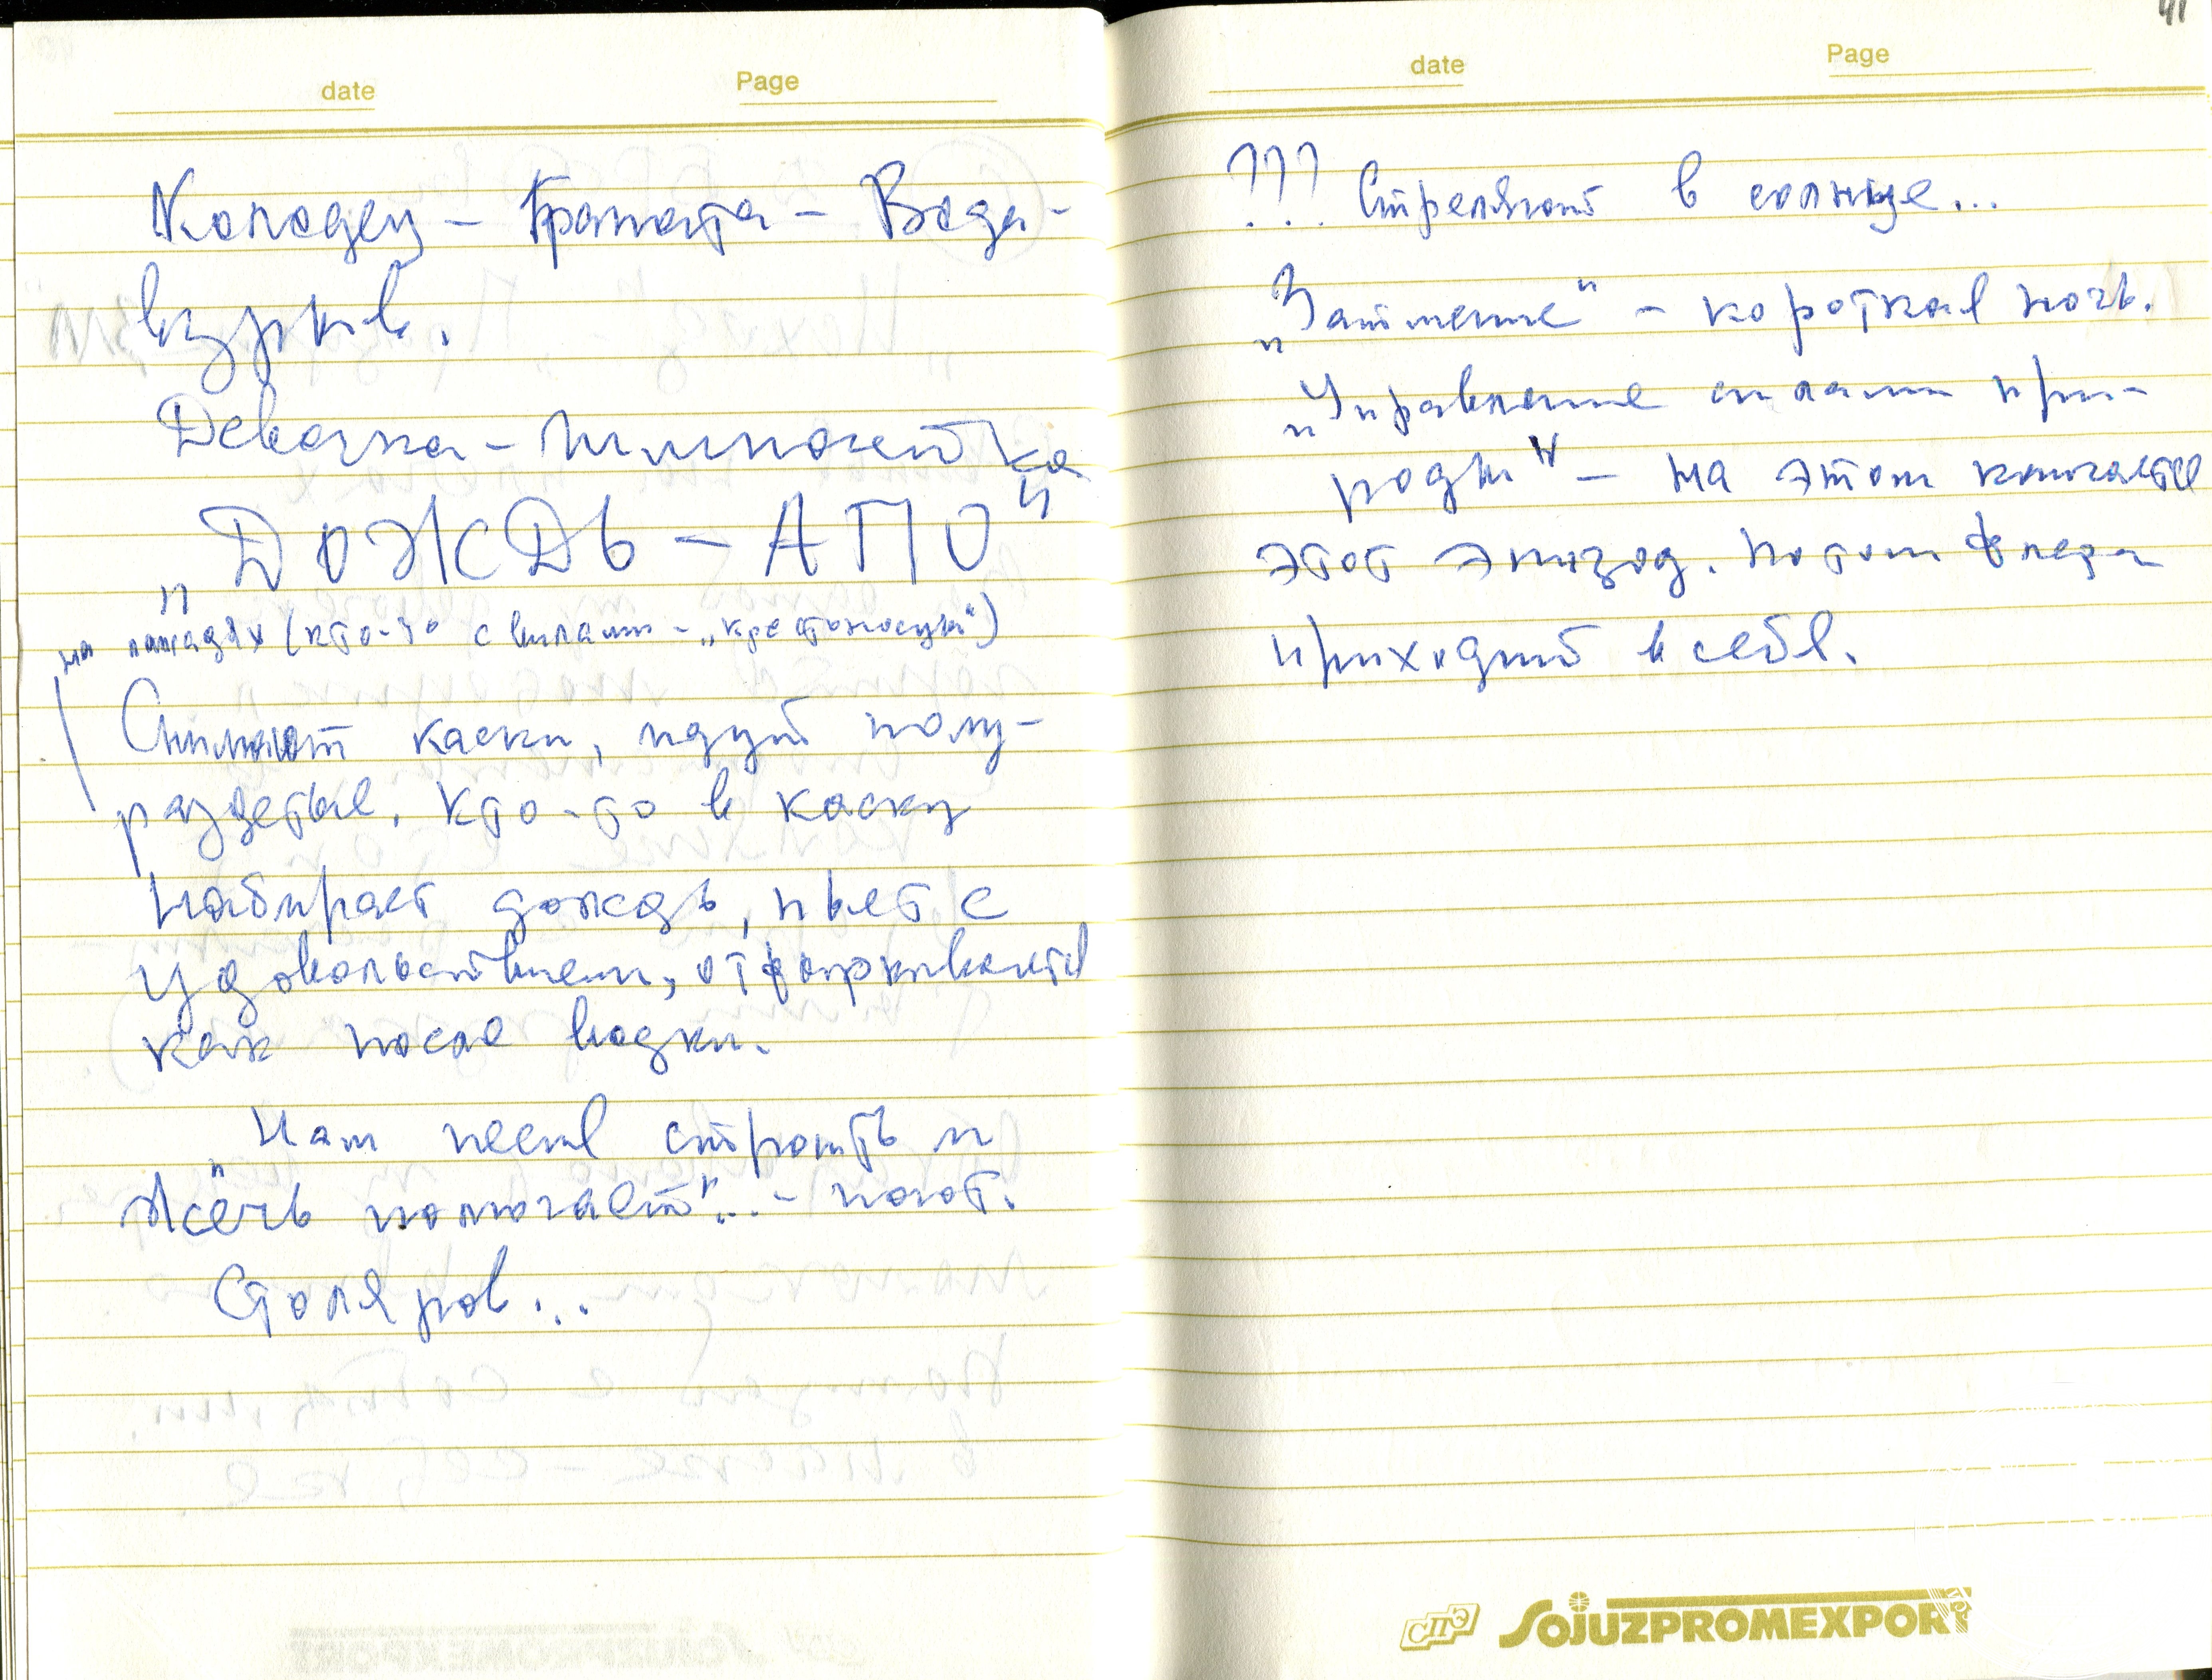 date Page
Колодец – Граната – Вода –
взрыв.
Девочка – пулеметка
„ДОЖДЬ – АПО"
на лошадях (кто-то с вилами – „крестоносцы")
Снимают каски, идут полу-
раздетые. Кто-то в каску
набирает дождь, пьет с
удовольствием, отфыркивается
как после водки.
„Нам песня строить и
жечь помогает"... – поют.
Столяров...
41
date Page
??? Стреляют в солнце...
„Затмение" – короткая ночь.
„Управление силами при-
роды" – на этом кончается
этот эпизод. Потом Флера
приходит в себя.
СПЭ SOJUZPROMEXPORT